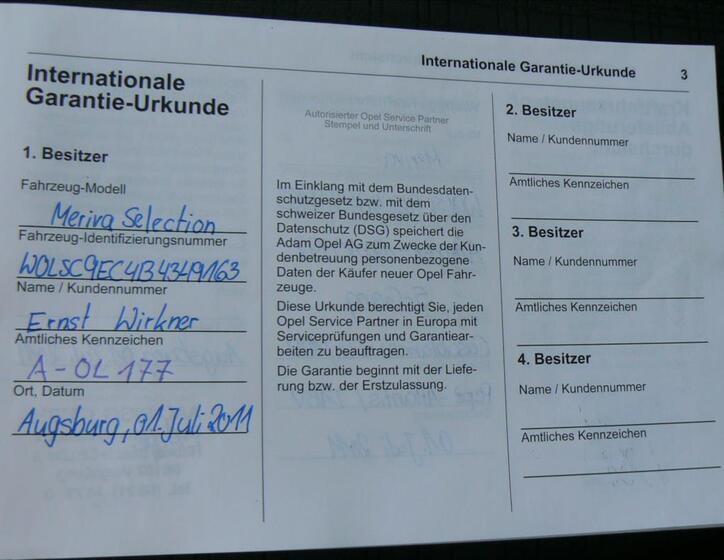 Internationale Garantie-Urkunde 3
Internationale
Garantie-Urkunde
1. Besitzer
Fahrzeug-Modell
Meriva Selection
Fahrzeug-Identifizierungsnummer
W0LSC9EC4B4349163
Name / Kundennummer
Ernst Wirkner
Amtliches Kennzeichen
A - OL 177
Ort, Datum
Augsburg, 01. Juli 2011
Autorisierter Opel Service Partner
Stempel und Unterschrift
Im Einklang mit dem Bundesdaten-
schutzgesetz bzw. mit dem
schweizer Bundesgesetz über den
Datenschutz (DSG) speichert die
Adam Opel AG zum Zwecke der Kun-
denbetreuung personenbezogene
Daten der Käufer neuer Opel Fahr-
zeuge.
Diese Urkunde berechtigt Sie, jeden
Opel Service Partner in Europa mit
Serviceprüfungen und Garantiear-
beiten zu beauftragen.
Die Garantie beginnt mit der Liefe-
rung bzw. der Erstzulassung.
2. Besitzer
Name / Kundennummer
Amtliches Kennzeichen
3. Besitzer
Name / Kundennummer
Amtliches Kennzeichen
4. Besitzer
Name / Kundennummer
Amtliches Kennzeichen